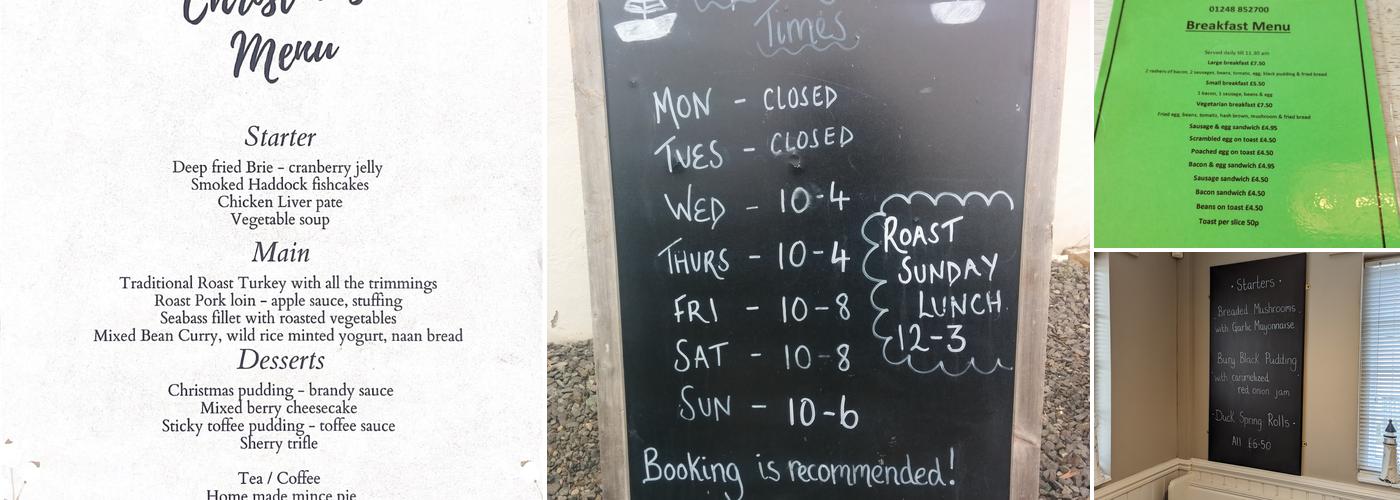 Christmas
Menu
Starter
Deep fried Brie - cranberry jelly
Smoked Haddock fishcakes
Chicken Liver pate
Vegetable soup
Main
Traditional Roast Turkey with all the trimmings
Roast Pork loin - apple sauce, stuffing
Seabass fillet with roasted vegetables
Mixed Bean Curry, wild rice minted yogurt, naan bread
Desserts
Christmas pudding - brandy sauce
Mixed berry cheesecake
Sticky toffee pudding - toffee sauce
Sherry trifle
Tea / Coffee
Home made mince pie
Times
MON - CLOSED
TUES - CLOSED
WED - 10-4
THURS - 10-4
FRI - 10-8
SAT - 10-8
SUN - 10-6
ROAST
SUNDAY
LUNCH
12-3
Booking is recommended!
01248 852700
Breakfast Menu
Served daily till 11.30 am
Large breakfast £7.50
2 rashers of bacon, 2 sausages, beans, tomato, egg, black pudding & fried bread
Small breakfast £5.50
1 bacon, 1 sausage, beans & egg
Vegetarian breakfast £7.50
Fried egg, beans, tomato, hash brown, mushroom & fried bread
Sausage & egg sandwich £4.95
Scrambled egg on toast £4.50
Poached egg on toast £4.50
Bacon & egg sandwich £4.95
Sausage sandwich £4.50
Bacon sandwich £4.50
Beans on toast £4.50
Toast per slice 50p
· Starters ·
Breaded Mushrooms
with Garlic Mayonnaise
Bury Black Pudding
with caramelized
red onion jam
Duck Spring Rolls
All £6·50